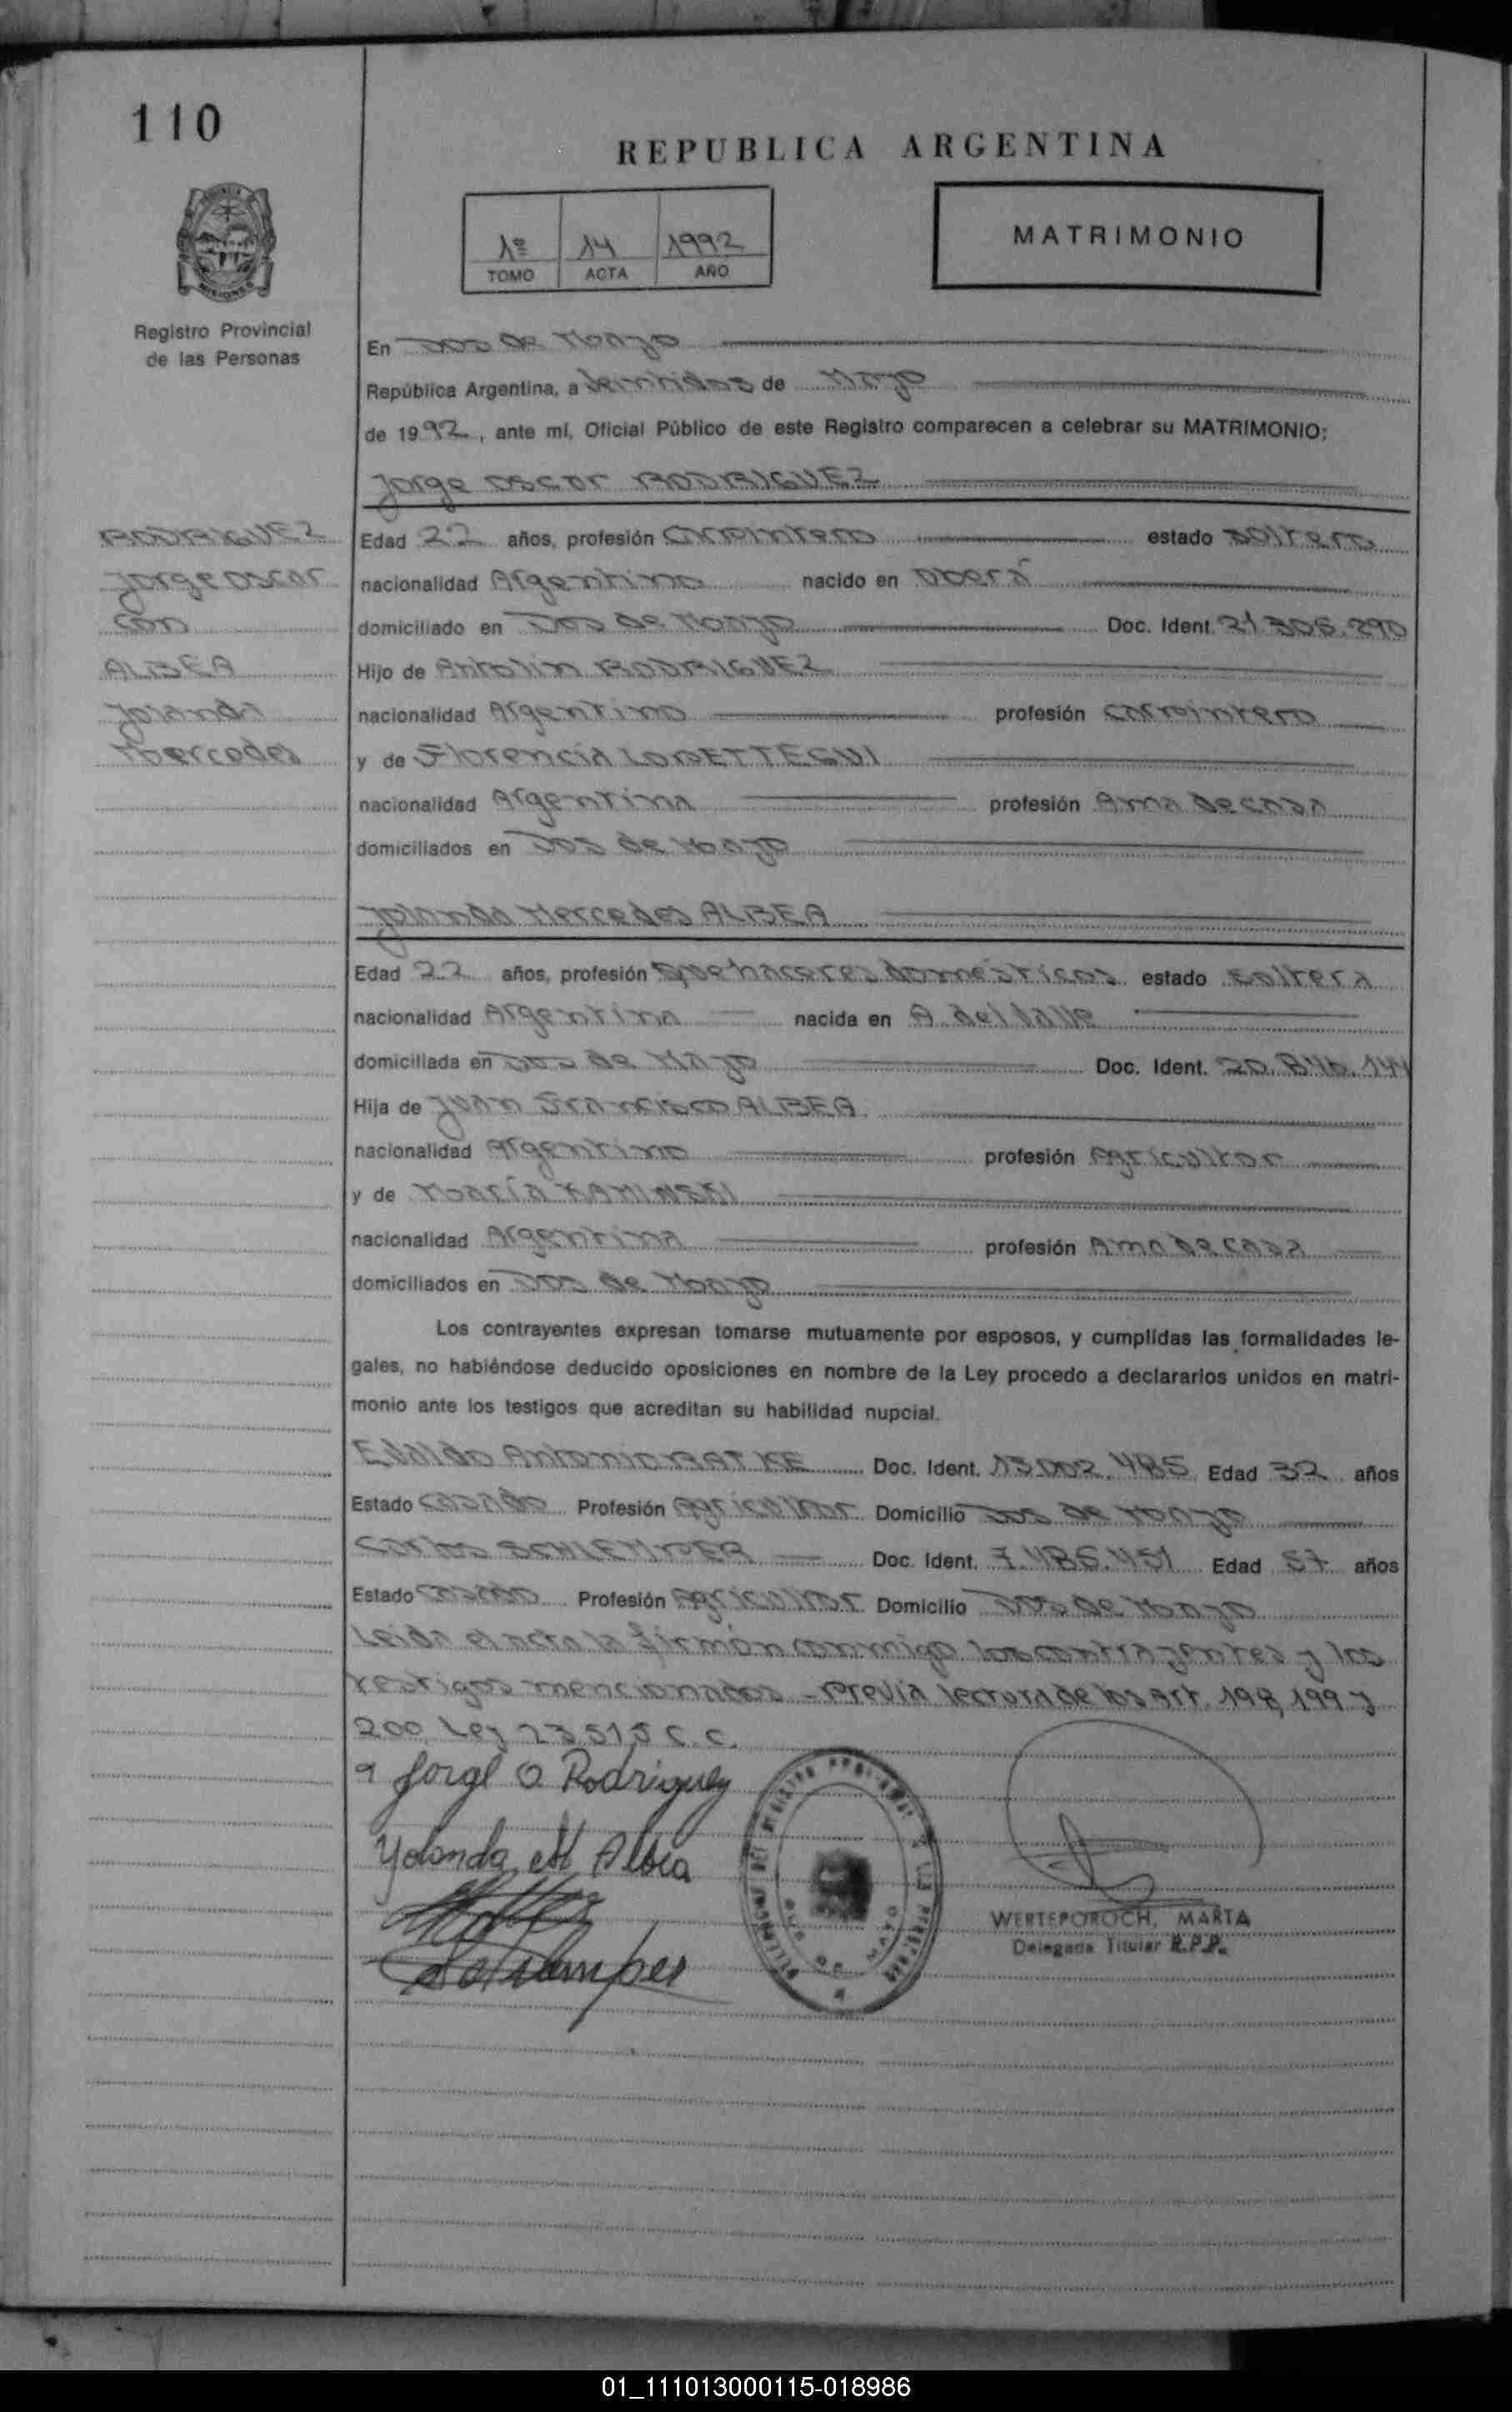 110
REPUBLICA ARGENTINA
MATRIMONIO
1º 14 1992
TOMO ACTA AÑO
Registro Provincial
de las Personas
En Dos de Mayo
República Argentina, a Veintidos de Mayo
de 1992, ante mí, Oficial Público de este Registro comparecen a celebrar su MATRIMONIO:
Jorge Oscar RODRIGUEZ
RODRIGUEZ
Jorge Oscar
con
ALBEA
Yolanda
Mercedes
Edad 22 años, profesión Carpintero estado soltero
nacionalidad Argentino nacido en Oberá
domiciliado en Dos de Mayo Doc. Ident. 21.305.290
Hijo de Antolin RODRIGUEZ
nacionalidad Argentino profesión carpintero
y de Florencia
nacionalidad Argentina profesión Ama de casa
domiciliados en Dos de Mayo
Yolanda Mercedes ALBEA
Edad 22 años, profesión Quehaceres domésticos estado soltera
nacionalidad Argentina nacida en A. del Valle
domiciliada en Dos de Mayo Doc. Ident. 20.846.144
Hija de Juan Francisco ALBEA
nacionalidad Argentino profesión Agricultor
y de María KAMINSKI
nacionalidad Argentina profesión Ama de casa
domiciliados en Dos de Mayo
Los contrayentes expresan tomarse mutuamente por esposos, y cumplidas las formalidades le-
gales, no habiéndose deducido oposiciones en nombre de la Ley procedo a declararlos unidos en matri-
monio ante los testigos que acreditan su habilidad nupcial.
Edaldo Antonio RATKE Doc. Ident. 13.002.485 Edad 32 años
Estado casado Profesión Agricultor Domicilio Dos de Mayo
Carlos SCHLEMPER Doc. Ident. 7.486.451 Edad 57 años
Estado casado Profesión Agricultor Domicilio Dos de Mayo
Leida el acta la firman conmigo los contrayentes y los
testigos mencionados - Previa lectura de los Art. 198, 199 y
200 Ley 23.515 C.C.
Jorge O Rodriguez
Yolanda M Albea
Schlemper
WERTEPOROCH, MARTA
Delegada Titular R.P.P.
01_111013000115-018986